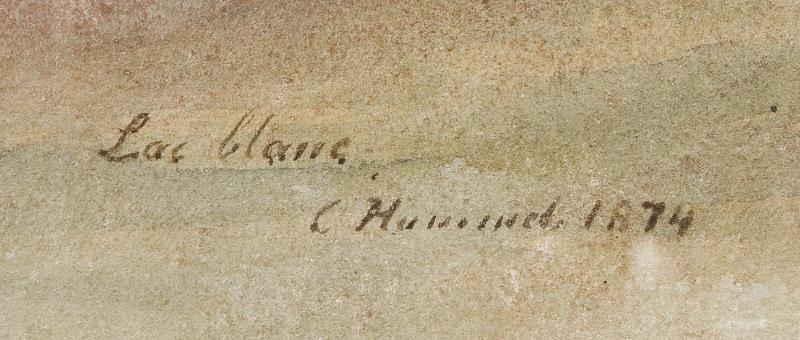 Lac blanc.
C Hummel 1874